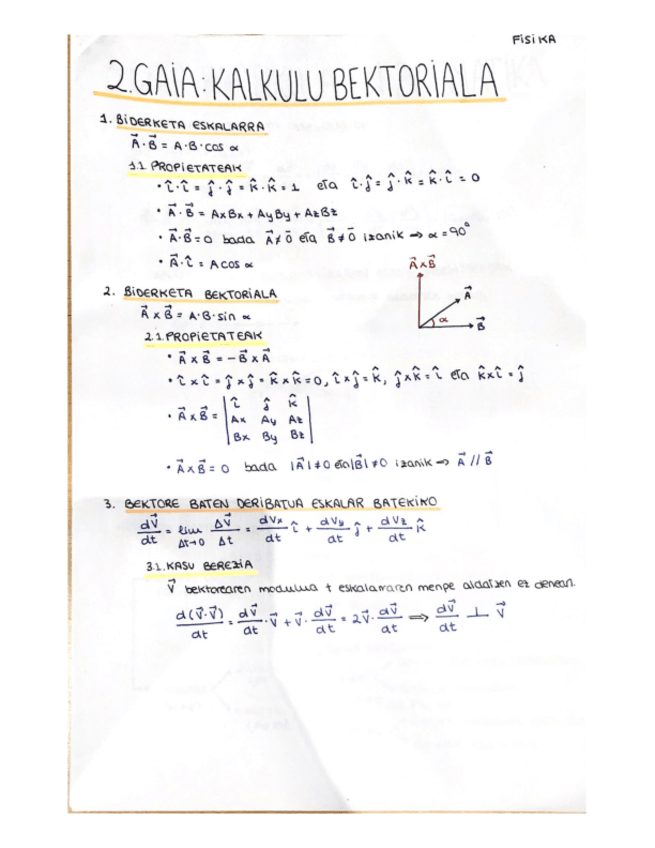 FISIKA
2. GAIA: KALKULU BEKTORIALA
1. BIDERKETA ESKALARRA
A⃗·B⃗ = A·B·cos α
1.1. PROPIETATEAK
• î·î = ĵ·ĵ = k̂·k̂ = 1 eta î·ĵ = ĵ·k̂ = k̂·î = 0
• A⃗·B⃗ = AxBx + AyBy + AzBz
• A⃗·B⃗ = 0 bada A⃗ ≠ 0⃗ eta B⃗ ≠ 0⃗ izanik → α = 90°
• A⃗·î = A cos α
A⃗xB⃗
A⃗
α
B⃗
2. BIDERKETA BEKTORIALA
A⃗ x B⃗ = A·B·sin α
2.1. PROPIETATEAK
• A⃗ x B⃗ = - B⃗ x A⃗
• î x î = ĵ x ĵ = k̂ x k̂ = 0, î x ĵ = k̂, ĵ x k̂ = î eta k̂ x î = ĵ
• A⃗ x B⃗ = | î ĵ k̂ |
| Ax Ay Az |
| Bx By Bz |
• A⃗ x B⃗ = 0 bada |A⃗| ≠ 0 eta |B⃗| ≠ 0 izanik → A⃗ // B⃗
3. BEKTORE BATEN DERIBATUA ESKALAR BATEKIKO
dV⃗/dt = lim Δt→0 ΔV⃗/Δt = dVx/dt î + dVy/dt ĵ + dVz/dt k̂
3.1. KASU BEREZIA
V⃗ bektorearen modulua t eskalarraren menpe aldatzen ez denean.
d(V⃗·V⃗)/dt = dV⃗/dt · V⃗ + V⃗ · dV⃗/dt = 2V⃗ · dV⃗/dt ⟹ dV⃗/dt ⊥ V⃗